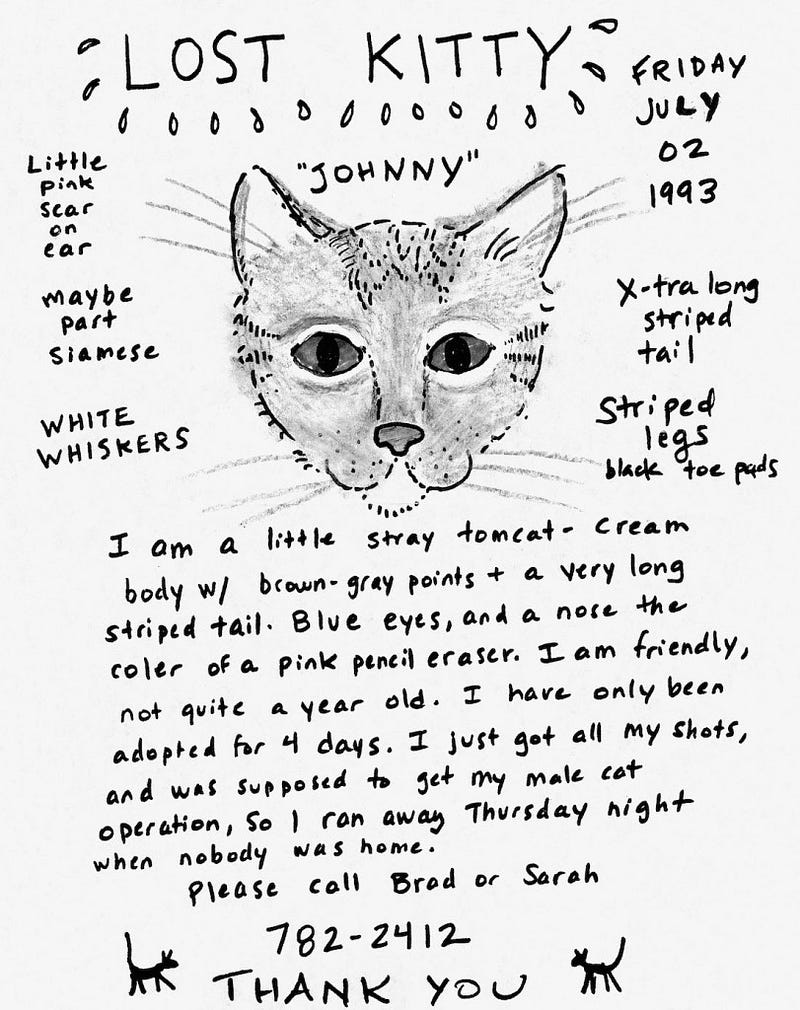 LOST KITTY
FRIDAY
JULY
02
1993
"JOHNNY"
Little
pink
scar
on
ear
maybe
part
siamese
WHITE
WHISKERS
X-tra long
striped
tail
Striped
legs
black toe pads
I am a little stray tomcat - cream
body w/ brown-gray points + a very long
striped tail. Blue eyes, and a nose the
coler of a pink pencil eraser. I am friendly,
not quite a year old. I have only been
adopted for 4 days. I just got all my shots,
and was supposed to get my male cat
operation, So I ran away Thursday night
when nobody was home.
Please call Brad or Sarah
782-2412
THANK YOU